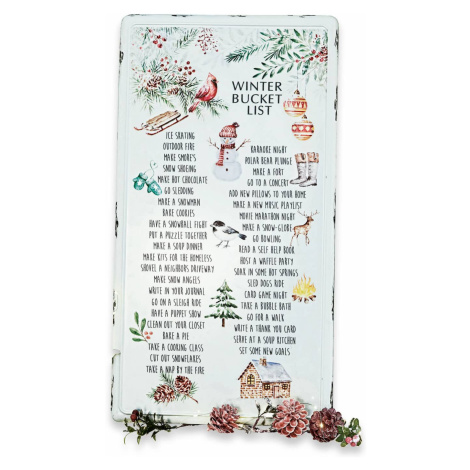 WINTER
BUCKET
LIST
ICE SKATING
OUTDOOR FIRE
MAKE SMORE'S
SNOW SHOEING
MAKE HOT CHOCOLATE
GO SLEDDING
MAKE A SNOWMAN
BAKE COOKIES
HAVE A SNOWBALL FIGHT
PUT A PUZZLE TOGETHER
MAKE A SOUP DINNER
MAKE KITS FOR THE HOMELESS
SHOVEL A NEIGHBORS DRIVEWAY
MAKE SNOW ANGELS
WRITE IN YOUR JOURNAL
GO ON A SLEIGH RIDE
HAVE A PUPPET SHOW
CLEAN OUT YOUR CLOSET
BAKE A PIE
TAKE A COOKING CLASS
CUT OUT SNOWFLAKES
TAKE A NAP BY THE FIRE
KARAOKE NIGHT
POLAR BEAR PLUNGE
MAKE A FORT
GO TO A CONCERT
ADD NEW PILLOWS TO YOUR HOME
MAKE A NEW MUSIC PLAYLIST
MOVIE MARATHON NIGHT
MAKE A SNOW-GLOBE
GO BOWLING
READ A SELF HELP BOOK
HOST A WAFFLE PARTY
SOAK IN SOME HOT SPRINGS
SLED DOGS RIDE
CARD GAME NIGHT
TAKE A BUBBLE BATH
GO FOR A WALK
WRITE A THANK YOU CARD
SERVE AT A SOUP KITCHEN
SET SOME NEW GOALS